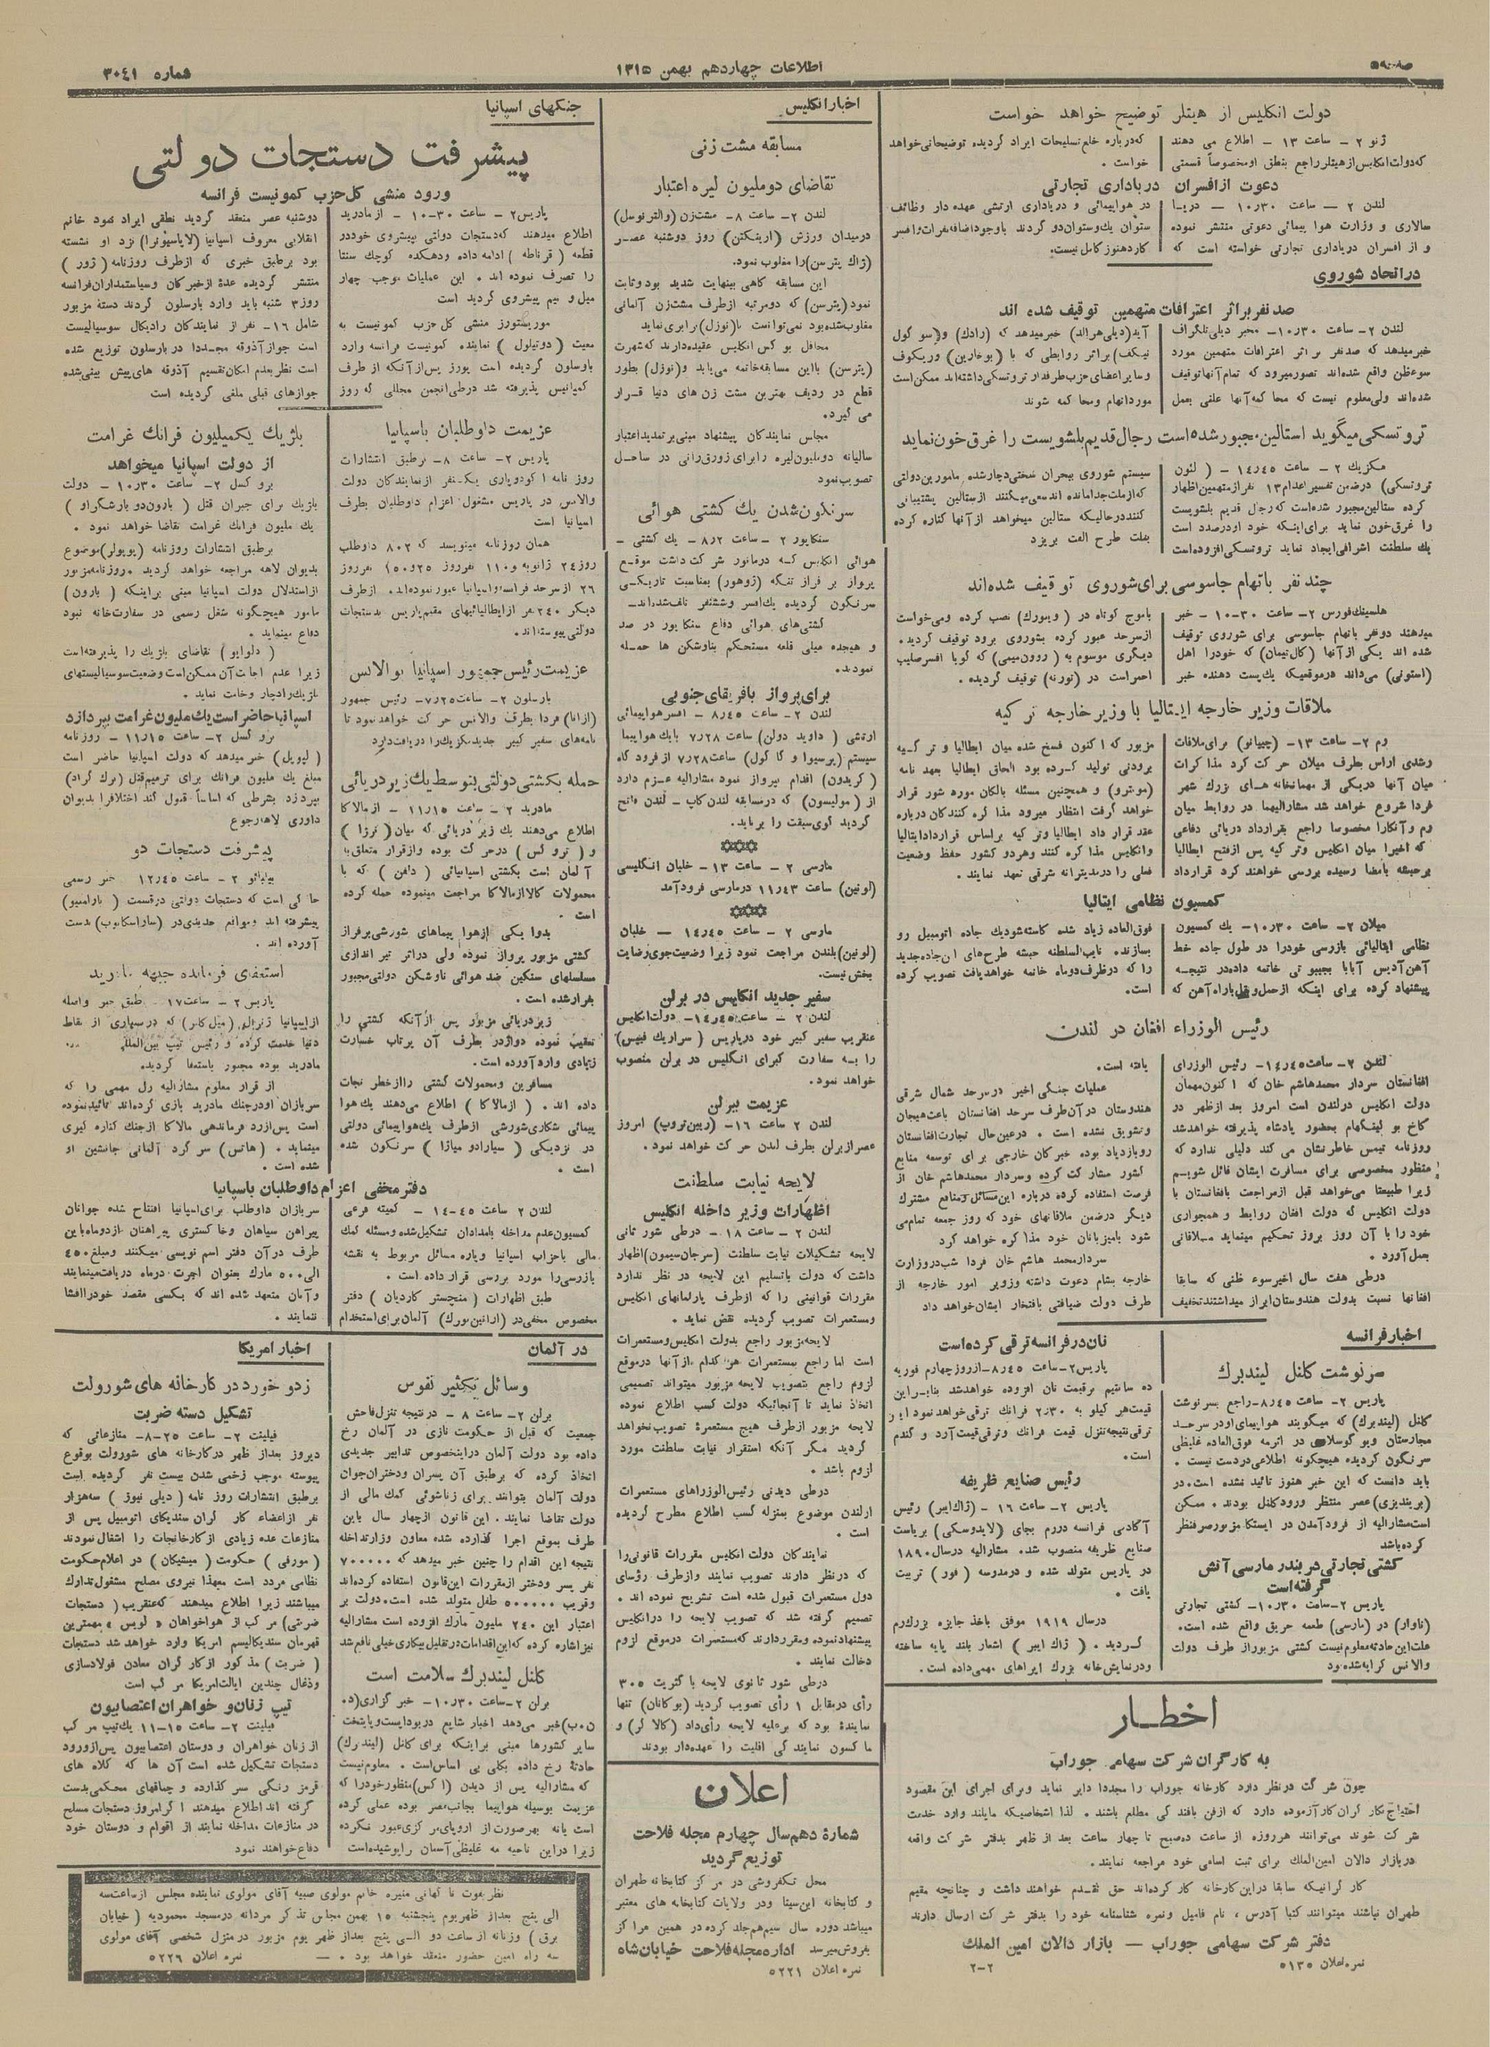 اطلاعات چهاردهم بهمن ۱۳۱۵
شماره ۳۰۴۱
دولت انگلیس از هیتلر توضیح خواهد خواست
ژنو ۲ - ساعت ۱۳ - اطلاع می دهند
که دولت انگلیس از هیتلر راجع بنطق او مخصوصاً قسمتی
که درباره خلع تسلیحات ایراد گردیده توضیحاتی خواهد
خواست .
دعوت از افسران دریاداری تجارتی
لندن ۲ — ساعت ۱۰٫۳۰ — دریا
سالاری و وزارت هوا پیمائی دعوتی منتشر نموده
و از افسران دریاداری تجارتی خواسته است که
در هواپیمائی و دریاداری ارتشی عهده دار وظائف
ستوان یک و ستوان دو گردند باوجود اضافه نفرات و افسر
کادر هنوز کامل نیست.
در اتحاد شوروی
صد نفر براثر اعترافات متهمین توقیف شده اند
لندن ۲- ساعت ۱۰٫۳۰- مخبر دیلی تلگراف
خبر میدهد که صد نفر براثر اعترافات متهمین مورد
سوءظن واقع شده اند تصور میرود که تمام آنها توقیف
شده اند ولی معلوم نیست که محاکمه آنها علنی بعمل
آید (دیلی هرالد) خبر میدهد که (رادک) و (سو کول
نیکف) براثر روابطی که با (بوخارین) و ریکوف
و سایر اعضای حزب طرفدار تروتسکی داشته اند ممکن است
مورد اتهام و محاکمه شوند
تروتسکی میگوید استالین مجبور شده است رجال قدیم بلشویست را غرق خون نماید
مکزیک ۲ - ساعت ۱۴٫۴۵ - ( لئون
تروتسکی) در ضمن تفسیر اعدام ۱۳ نفر از متهمین اظهار
کرده ستالین مجبور شده است که رجال قدیم بلشویست
را غرق خون نماید برای اینکه خود او درصدد است
یک سلطنت اشرافی ایجاد نماید تروتسکی افزوده است
سیستم شوروی ببحران سختی دچار شده مامورین دولتی
که از ملت جدا مانده اند سعی میکنند از ستالین پشتیبانی
کنند در حالیکه ستالین میخواهد از آنها کناره کرده
بملت طرح الفت بریزد
چند نفر باتهام جاسوسی برای شوروی توقیف شده اند
هلسینک فورس ۲- ساعت ۱۰-۳۰ - خبر
میدهند دو نفر باتهام جاسوسی برای شوروی توقیف
شده اند یکی از آنها (کال نیمان) که خود را اهل
(استونی) می داند در موقعیکه یک پست دهنده خبر
باموج کوتاه در ( ویبورک) نصب کرده و می خواست
از سرحد عبور کرده بشوروی برود توقیف گردید.
دیگری موسوم به ( روون میمی) که گویا افسر صلیب
احمر است در (تورنه) توقیف گردیده.
ملاقات وزیر خارجه ایتالیا با وزیر خارجه ترکیه
رم ۲- ساعت ۱۳- (چیانو) برای ملاقات
رشدی اراس بطرف میلان حرکت کرد مذاکرات
میان آنها در یکی از مهمانخانه های بزرگ شهر
فردا شروع خواهد شد مشارالیهما در روابط میان
رم و آنکارا مخصوصا راجع بقرارداد دریائی دفاعی
که اخیرا میان انگلیس و ترکیه پس از فتح ایطالیا
برحبشه بامضا رسیده بررسی خواهند کرد قرارداد
مزبور که اکنون فسخ شده میان ایطالیا و ترکیه
برودتی تولید کرده بود الحاق ایطالیا بعهد نامه
(مونترو) و همچنین مسئله بالکان مورد شور قرار
خواهد گرفت انتظار میرود مذاکره کنندگان درباره
عقد قرارداد ایطالیا و ترکیه براساس قرارداد ایتالیا
و انگلیس مذاکره کنند و هردو کشور حفظ وضعیت
فعلی را در مدیترانه شرقی تعهد نمایند.
کمسیون نظامی ایتالیا
میلان ۲- ساعت ۱۰٫۳۰- یک کمسیون
نظامی ایتالیائی بازرسی خود را در طول جاده خط
آهن آدیس آبابا بجیبوتی خاتمه داده در نتیجه
پیشنهاد کرده برای اینکه از حمل و نقل با راه آهن که
فوق العاده زیاد شده کاسته شود یک جاده اتومبیل رو
بسازند. نایب السلطنه حبشه طرح های این جاده جدید
را که در ظرف دو ماه خاتمه خواهد یافت تصویب کرده
است.
رئیس الوزراء افغان در لندن
لندن ۲- ساعت ۱۴٫۴۵- رئیس الوزرای
افغانستان سردار محمد هاشم خان که اکنون مهمان
دولت انگلیس در لندن است امروز بعد از ظهر در
کاخ بوکینگهام بحضور پادشاه پذیرفته خواهد شد
روزنامه تیمس خاطر نشان می کند دلیلی ندارد که
منظور مخصوصی برای مسافرت ایشان قائل شویم
زیرا طبیعتا می خواهد قبل از مراجعت بافغانستان با
دولت انگلیس که دولت افغان روابط و همجواری
خود را با آن روز بروز تحکیم مینماید ملاقاتی
بعمل آورد .
در طی هفت سال اخیر سوء ظنی که سابقا
افغانها نسبت بدولت هندوستان ابراز میداشتند تخفیف
یافته است.
عملیات جنگی اخیر در سرحد شمال شرقی
هندوستان در آن طرف سرحد افغانستان باعث هیجان
و تشویق نشده است . در عین حال تجارت افغانستان
رو بازدیاد بوده خبرگان خارجی برای توسعه منابع
کشور مشارکت کرده و سردار محمد هاشم خان از
فرصت استفاده کرده درباره این مسائل و منافع مشترک
دیگر در ضمن ملاقاتهای خود که روز جمعه تمام می
شود بامیزبانان خود مذاکره خواهد کرد
سردار محمد هاشم خان فردا شب در وزارت
خارجه بشام دعوت داشته وزیر امور خارجه از
طرف دولت ضیافتی بافتخار ایشان خواهد داد
اخبار فرانسه
سرنوشت کلنل لیندبرک
پاریس ۲- ساعت ۸٫۴۵- راجع بسر نوشت
کلنل (لیندبرک) که میگویند هواپیمای او در سرحد
مجارستان و یوگوسلاوی در اثر مه فوق العاده غلیظی
سرنگون گردیده هیچگونه اطلاعی در دست نیست .
باید دانست که این خبر هنوز تائید نشده است. در
(بریندیزی) عصر منتظر ورود کلنل بودند . ممکن
است مشارالیه از فرود آمدن در ایستگاه مزبور صرفنظر
کرده باشد
کشتی تجارتی در بندر مارسی آتش
گرفته است
پاریس ۲- ساعت ۱۰٫۳۰- کشتی تجارتی
(ناوار) در (مارسی) طعمه حریق واقع شده است.
علت این حادثه معلوم نیست کشتی مزبور از طرف دولت
والانس کرایه شده بود
نان در فرانسه ترقی کرده است
پاریس ۲- ساعت ۸٫۴۵- از روز چهارم فوریه
ده سانتیم برقیمت نان افزوده خواهد شد بنابراین
قیمت هر کیلو به ۲٫۳۰ فرانک ترقی خواهد نمود این
ترقی نتیجه تنزل قیمت فرانک و ترقی قیمت آرد و گندم
است.
رئیس صنایع ظریفه
پاریس ۲- ساعت ۱۶ - (ژاک ایبر) رئیس
آکادمی فرانسه در رم بجای (لایدوسکی) بریاست
صنایع ظریفه منصوب شد. مشارالیه در سال ۱۸۹۰
در پاریس متولد شده و در مدرسه ( فور ) تربیت
یافت .
در سال ۱۹۱۹ موفق باخذ جایزه بزرگ رم
گردید. ( ژاک ایبر ) اشعار بلند پایه ساخته
و در نمایش خانه بزرگ اپراهای مهمی داده است.
اخطار
به کارگران شرکت سهامی جوراب
چون شرکت در نظر دارد کارخانه جوراب را مجددا دایر نماید و برای اجرای این مقصود
احتیاج بکارگران کار آزموده دارد که از فن بافندگی مطلع باشند . لذا اشخاصیکه مایلند وارد خدمت
شرکت شوند می توانند هر روزه از ساعت ده صبح تا چهار ساعت بعد از ظهر بدفتر شرکت واقعه
در بازار دالان امین الملک برای ثبت اسامی خود مراجعه نمایند.
کارگرانیکه سابقا در این کارخانه کار کرده اند حق تقدم خواهند داشت و چنانچه مقیم
طهران نباشند میتوانند کتبا آدرس ، نام فامیل و نمره شناسنامه خود را بدفتر شرکت ارسال دارند
دفتر شرکت سهامی جوراب — بازار دالان امین الملک
نمره اعلان ۵۱۳۵
۲-۲
اخبار انگلیس
مسابقه مشت زنی
تقاضای دو ملیون لیره اعتبار
لندن ۲- ساعت ۸- مشت زن (والتر نوسل)
در میدان ورزش (ارینگتن) روز دوشنبه عصر
(ژاک پترسن) را مغلوب نمود.
این مسابقه گاهی بینهایت شدید بود و ثابت
نمود (پترسن) که دو مرتبه از طرف مشت زن آلمانی
مغلوب شده بود نمی توانست با (نوزل) برابری نماید
محافل بوکس انگلیس عقیده دارند که شهرت
(پترسن) با این مسابقه خاتمه می یابد و (نوزل) بطور
قطع در ردیف بهترین مشت زن های دنیا قرار
می گیرد.
مجلس نمایندگان پیشنهاد مبنی بر تمدید اعتبار
سالیانه دو ملیون لیره را برای زورق رانی در ساحل
تصویب نمود
سرنگون شدن یک کشتی هوائی
سنگاپور ۲ - ساعت ۸٫۲- یک کشتی -
هوائی انگلیس که در مانور شرکت داشت موقع
پرواز بر فراز تنگه (ژوهور) بمناسبت تاریکی
سرنگون گردیده یک افسر و شش نفر تلف شده اند-
کشتی های هوائی دفاع سنگاپور در صد
و هیجده میلی قلعه مستحکم بناوشکن ها حمله
نمودند.
برای پرواز بافریقای جنوبی
لندن ۲- ساعت ۸٫۴۵- افسر هواپیمائی
ارتشی ( داوید دولن) ساعت ۷٫۲۸ بایک هواپیما
سیستم (پرسیوا و گا گول) ساعت ۷٫۲۸ از فرودگاه
( کریدون) اقدام بپرواز نمود مشارالیه عزم دارد
از ( مولیسون) که در مسابقه لندن کاپ - لندن فاتح
گردید گوی سبقت را برباید.
مارسی ۲ - ساعت ۱۳ - خلبان انگلیسی
(لونین) ساعت ۱۱٫۴۳ در مارسی فرود آمد
مارسی ۲ - ساعت ۱۴٫۴۵ — خلبان
(لونین) بلندن مراجعت نمود زیرا وضعیت جوی رضایت
بخش نیست.
سفیر جدید انگلیس در برلن
لندن ۲ - ساعت ۱۴٫۴۵- دولت انگلیس
عنقریب سفیر کبیر خود در پاریس ( سراریک فیپس)
را به سفارت کبرای انگلیس در برلن منصوب
خواهد نمود.
عزیمت ببرلن
لندن ۲ ساعت ۱۶- (ریبن تروپ) امروز
عصر از برلن بطرف لندن حرکت خواهد نمود.
لایحه نیابت سلطنت
اظهارات وزیر داخله انگلیس
لندن ۲ - ساعت ۱۸ - در طی شور ثانی
لایحه تشکیلات نیابت سلطنت (سرجان سیمون) اظهار
داشت که دولت باتسلیم این لایحه در نظر ندارد
مقررات قوانینی را که از طرف پارلمانهای انگلیس
و مستعمرات تصویب گردیده نقض نماید .
لایحه مزبور راجع بدولت انگلیس و مستعمرات
است اما راجع بمستعمرات هر کدام از آنها در موقع
لزوم راجع بتصویب لایحه مزبور میتواند تصمیمی
اتخاذ نماید تا آنجائیکه دولت کسب اطلاع نموده
لایحه مزبور از طرف هیچ مستعمرۀ تصویب نخواهد
گردید مگر آنکه استقرار نیابت سلطنت مورد
لزوم باشد .
در طی دیدنی رئیس الوزراهای مستعمرات
از لندن موضوع بمنزله کسب اطلاع مطرح گردیده
است .
نمایندگان دولت انگلیس مقررات قانونی را
که در نظر دارند تصویب نمایند و از طرف رؤسای
دول مستعمرات قبول شده است تشریح نموده اند .
تصمیم گرفته شد که تصویب لایحه را در انگلیس
پیشنهاد نموده و مقرر دارند که مستعمرات در موقع لزوم
دخالت نمایند .
در طی شور ثانوی لایحه با کثریت ۳۰۵
رأی در مقابل ۱ رأی تصویب گردید (بوکانان) تنها
نمایندۀ بود که برعلیه لایحه رأی داد (کالاگر) و
ماکسون نمایندگی اقلیت را عهده دار بودند
اعلان
شمارۀ دهم سال چهارم مجله فلاحت
توزیع گردید
محل تکفروشی در مرکز کتابخانه طهران
و کتابخانه ابن سینا و در ولایات کتابخانه های معتبر
میباشد دوره سال سیم هم جلد کرده در همین مراکز
بفروش میرسد اداره مجله فلاحت خیابان شاه
نمره اعلان ۵۲۲۱
جنگهای اسپانیا
پیشرفت دستجات دولتی
ورود منشی کل حزب کمونیست فرانسه
پاریس ۲- ساعت ۱۰-۳۰ - از مادرید
اطلاع میدهند که دستجات دولتی پیشروی خود در
قطعه ( قرناطه ) ادامه داده و دهکده کوچک سنتا
را تصرف نموده اند . این عملیات موجب چهار
میل و نیم پیشروی گردید است
موریستورز منشی کل حزب کمونیست به
معیت (دوتیلول ) نماینده کمونیست فرانسه وارد
بارسلون گردیده است یورز پس از آنکه از طرف
کمپانیس پذیرفته شد در طی انجمن مجللی که روز
دوشنبه عصر منعقد گردید نطقی ایراد نمود خانم
انقلابی معروف اسپانیا (لاپاسیونرا) نزد او نشسته
بود برطبق خبری که از طرف روزنامه (ژور )
منتشر گردیده عدۀ از خبرگان و سیاستمداران فرانسه
روز ۳ شنبه باید وارد بارسلون گردند دستۀ مزبور
شامل ۱۶- نفر از نمایندگان رادیکال سوسیالیست
است جواز آذوقه مجددا در بارسلون توزیع شده
است نظر بعدم امکان تقسیم آذوقه های پیش بینی شده
جوازهای قبلی ملغی گردیده است
عزیمت داوطلبان باسپانیا
پاریس ۲- ساعت ۸- برطبق انتشارات
روز نامه اکودوپاری یک نفر از نمایندگان دولت
والانس در پاریس مشغول اعزام داوطلبان بطرف
اسپانیا است
همان روزنامه مینویسد که ۸۰۲ داوطلب
روز ۲۴ ژانویه و ۱۱۰ نفر روز ۲۵ و ۱۵۰ نفر روز
۲۶ از سرحد فرانسه و اسپانیا عبور نموده اند. از طرف
دیگر ۲۴۰ نفر از ایطالیائیهای مقیم پاریس بدستجات
دولتی پیوسته اند.
عزیمت رئیس جمهور اسپانیا بوالانس
بارسلون ۲- ساعت ۷٫۲۵- رئیس جمهور
(ازانا) فردا بطرف والانس حرکت خواهد نمود تا
نامه های سفیر کبیر جدید مکزیک را دریافت دارد
حمله بکشتی دولتی بتوسط یک زیر دریائی
مادرید ۲ - ساعت ۱۱٫۱۵ - از مالاگا
اطلاع می دهند یک زیر دریائی که میان ( نرزا )
و ( تروکس ) در حرکت بوده و از قرار متعلق با
آلمان است بکشتی اسپانیائی ( دلفن ) که با
محمولات کالا از مالاگا مراجعت مینموده حمله کرده
است .
بدوا یکی از هوا پیماهای شورشی بر فراز
کشتی مزبور پرواز نموده ولی در اثر تیر اندازی
مسلسلهای سنگین ضد هوائی ناوشکن دولتی مجبور
بفرار شده است .
زیر دریائی مزبور پس از آنکه کشتی را
تعقیب نموده دو اژدر بطرف آن پرتاب خسارت
زیادی وارد آورده است.
مسافرین و محمولات کشتی را از خطر نجات
داده اند . ( از مالاگا ) اطلاع می دهند یک هوا
پیمائی شکاری شورشی از طرف یک هواپیمائی دولتی
در نزدیکی ( سیارادو میاژا ) سرنگون شده
است .
بلژیک یکمیلیون فرانک غرامت
از دولت اسپانیا میخواهد
بروکسل ۲- ساعت ۱۰٫۳۰- دولت
بلژیک برای جبران قتل ( بارون دو بارشگراو )
یک ملیون فرانک غرامت تقاضا خواهد نمود .
برطبق انتشارات روزنامه (پوپولر) موضوع
بدیوان لاهه مراجعه خواهد گردید . روزنامه مزبور
از استدلال دولت اسپانیا مبنی براینکه ( بارون )
مامور هیچگونه شغل رسمی در سفارت خانه نبود
دفاع مینماید .
( دلوایو ) تقاضای بلژیک را پذیرفته است
زیرا عدم اجابت آن ممکن است وضعیت سوسیالیستهای
بلژیک را دچار وخامت نماید .
اسپانیا حاضر است یک ملیون غرامت بپردازد
بروکسل ۲- ساعت ۱۱٫۱۵ - روزنامه
( لپوپل) خبر میدهد که دولت اسپانیا حاضر است
مبلغ یک ملیون فرانک برای ترمیم قتل (برک گراد)
بپردازد بشرطی که اساسا قبول کند اختلاف را بدیوان
داوری لاهه رجوع
پیشرفت دستجات دو
بیلبائو ۲- ساعت ۱۲٫۴۵ خبر رسمی
حاکی است که دستجات دولتی در قسمت ( بارامبیو)
پیشرفته اند و مواقع جدیدی در (ساراسکابوب) بدست
آورده اند .
استعفای فرمانده جبهه مادرید
پاریس ۲- ساعت ۱۷- طبق خبر واصله
از اسپانیا ژنرال (میل کلبر) که در بسیاری از نقاط
دنیا خدمت کرده و رئیس تیپ بین الملل
مادرید بوده مجبور باستعفا گردید.
از قرار معلوم مشارالیه رل مهمی را که
سربازان او در جنگ مادرید بازی کرده اند تائید نموده
است پس از رد فرماندهی مالاگا از جنگ کناره گیری
مینماید . (هانس) سرگرد آلمانی جانشین او
شده است .
دفتر مخفی اعزام داوطلبان باسپانیا
لندن ۲ ساعت ۱۴-۴۵ - کمیته فرعی
کمسیون عدم مداخله بامدادان تشکیل شده و مسئله کمک
مالی باحزاب اسپانیا و پاره مسائل مربوط به نقشه
بازرسی را مورد بررسی قرار داده است .
طبق اظهارات ( منچستر گاردیان ) دفتر
مخصوص مخفی در (ارانین بورک) آلمان برای استخدام
سربازان داوطلب برای اسپانیا افتتاح شده جوانان
پیراهن سیاهان و خاکستری پیراهنان از دو ماه باین
طرف در آن دفتر اسم نویسی میکنند و مبلغ ۴۵۰
الی ۵۰۰ مارک بعنوان اجرت در ماه دریافت مینمایند
و آنان متعهد شده اند که بکسی مقصد خود را افشا
ننمایند .
در آلمان
وسائل تکثیر نفوس
برلن ۲- ساعت ۸ - در نتیجه تنزل فاحش
جمعیت که قبل از حکومت نازی در آلمان رخ
داده بود دولت آلمان در این خصوص تدابیر جدیدی
اتخاذ کرده که برطبق آن پسران و دختران جوان
دولت آلمان بتوانند برای زناشوئی کمک مالی از
دولت تقاضا نمایند. این قانون از چهار سال باین
طرف بموقع اجرا گذارده شده معاون وزارت داخله
نتیجه این اقدام را چنین خبر میدهد که ۷۰۰۰۰۰
نفر پسر و دختر از مقررات این قانون استفاده کرده اند
و قریب ۵۰۰۰۰۰ طفل متولد شده است. دولت بر
اعتبار این ۲۴۰ ملیون مارک افزوده است مشارالیه
نیز اشاره کرده که این اقدامات در تقلیل بیکاری خیلی نافع شد
کلنل لیندبرک سلامت است
برلن ۲- ساعت ۱۰٫۳۰ - خبر گزاری (د.
ن.ب) خبر می دهد اخبار شایع در بوداپست و پایتخت
سایر کشورها مبنی براینکه برای کلنل (لیندبرک)
حادثۀ رخ داده بکلی بی اساس است . معلوم نیست
که مشارالیه پس از دیدن (اکس) منظور خود را که
عزیمت بوسیله هواپیما بجانب مصر بوده عملی کرده
است یا نه بهر صورت از اروپای مرکزی عبور نکرده
زیرا در این ناحیه مه غلیظی آسمان را پوشیده است
اخبار امریکا
زد و خورد در کارخانه های شورولت
تشکیل دسته ضربت
فیلینت ۲- ساعت ۸-۲۵- منازعاتی که
دیروز بعد از ظهر در کارخانه های شورولت بوقوع
پیوسته موجب زخمی شدن بیست نفر گردیده است
برطبق انتشارات روز نامه ( دیلی نیوز ) سه هزار
نفر از اعضاء کارگران سندیکای اتومبیل پس از
منازعات عده زیادی از کارخانجات را اشغال نمودند
( مورفی ) حکومت (میشیگان ) در اعلام حکومت
نظامی مردد است معهذا نیروی مسلح مشغول تدارک
میباشند زیرا اطلاع میدهند که عنقریب ( دستجات
ضربتی ) مرکب از هواخواهان « لویس » مهمترین
قهرمان سندیکالیسم امریکا وارد خواهد شد دستجات
( ضربت ) مذکور از کارگران معادن فولادسازی
و ذغال چندین ایالت امریکا مرکب است
تیپ زنان و خواهران اعتصابیون
فیلینت ۲- ساعت ۱۱-۱۵ یک تیپ مرکب
از زنان خواهران و دوستان اعتصابیون پس از ورود
دستجات تشکیل شده است آن ها که کلاه های
قرمز رنگی سر گذارده و چماقهای محکمی بدست
گرفته اند اطلاع میدهند اگر امروز دستجات مسلح
در منازعات مداخله نمایند از اقوام و دوستان خود
دفاع خواهند نمود
نظر بفوت ناگهانی منیره خانم مولوی صبیه آقای مولوی نماینده مجلس از ساعت سه
الی پنج بعد از ظهر یوم پنجشنبه ۱۵ بهمن مجلس تذکر مردانه در مسجد محمودیه ( خیابان
برق ) و زنانه از ساعت دو الی پنج بعد از ظهر یوم مزبور در منزل شخصی آقای مولوی
سه راه امین حضور منعقد خواهد بود . — نمره اعلان ۵۲۲۶